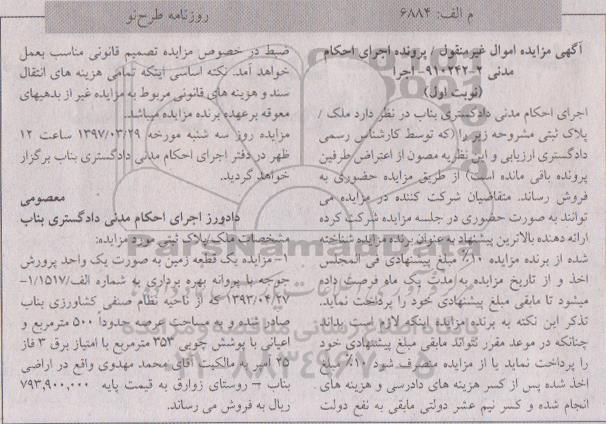 م الف: ۶۸۸۴
روزنامه طرح‌نو
آگهی مزایده اموال غیرمنقول / پرونده اجرای احکام
مدنی ۲-۹۱۰۲۴۲- اجرا
(نوبت اول)
اجرای احکام مدنی دادگستری بناب در نظر دارد ملک /
پلاک ثبتی مشروحه زیر را (که توسط کارشناس رسمی
دادگستری ارزیابی و این نظریه مصون از اعتراض طرفین
پرونده باقی مانده است) از طریق مزایده حضوری به
فروش رساند. متقاضیان شرکت کننده در مزایده می
توانند به صورت حضوری در جلسه مزایده شرکت کرده
ارائه دهنده بالاترین پیشنهاد به عنوان برنده مزایده شناخته
شده از برنده مزایده ۱۰% مبلغ پیشنهادی فی المجلس
اخذ و از تاریخ مزایده به مدت یک ماه فرصت داده
میشود تا مابقی مبلغ پیشنهادی خود را پرداخت نماید.
تذکر این نکته به برنده مزایده اینکه لازم است بداند
چنانکه در موعد مقرر نتواند مابقی مبلغ پیشنهادی خود
را پرداخت نماید یا از مزایده منصرف شود ۱۰% مبلغ
اخذ شده پس از کسر هزینه های دادرسی و هزینه های
انجام شده و کسر نیم عشر دولتی مابقی به نفع دولت
ضبط در خصوص مزایده تصمیم قانونی مناسب بعمل
خواهد آمد. نکته اساسی اینکه تمامی هزینه های انتقال
سند و هزینه های قانونی مربوط به مزایده غیر از بدهیهای
معوقه برعهده برنده مزایده میباشد.
مزایده روز سه شنبه مورخه ۱۳۹۷/۰۳/۲۹ ساعت ۱۲
ظهر در دفتر اجرای احکام مدنی دادگستری بناب برگزار
خواهد گردید.
معصومی
دادورز اجرای احکام مدنی دادگستری بناب
مشخصات ملک/پلاک ثبتی مورد مزایده:
۱- مزایده یک قطعه زمین به صورت یک واحد پرورش
جوجه با پروانه بهره برداری به شماره الف/۱/۱۵۱۷-
۱۳۹۳/۰۴/۲۷ که از ناحیه نظام صنفی کشاورزی بناب
صادر شده و به مساحت عرصه حدودا ۵۰۰ مترمربع و
اعیانی با پوشش چوبی ۳۵۳ مترمربع با امتیاز برق ۳ فاز
۲۵ آمپر به مالکیت آقای محمد مهدوی واقع در اراضی
بناب – روستای زوارق به قیمت پایه ۷۹۳,۹۰۰,۰۰۰
ریال به فروش می رساند.